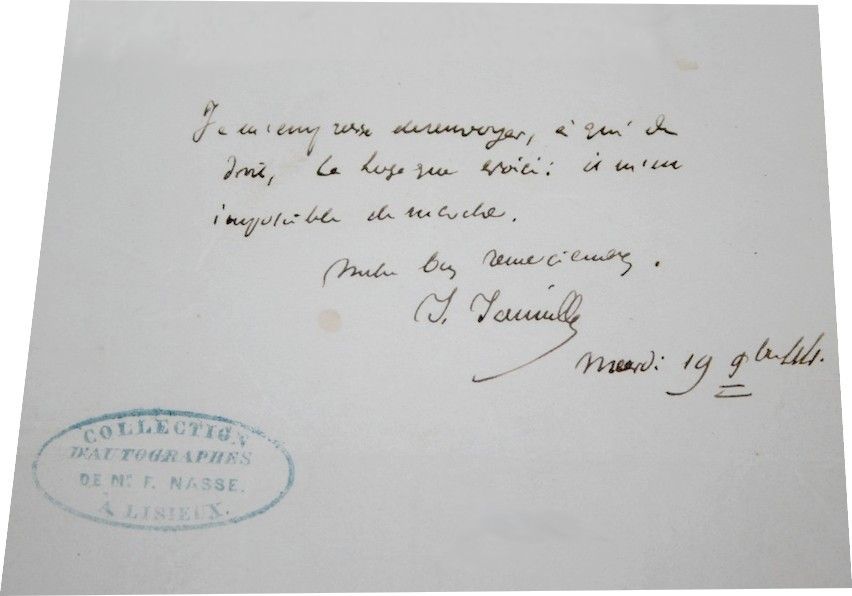 Je m'empresse de renvoyer, à qui de
droit, la loge que voici : il m'est
impossible de marcher.
Mille bons remerciements.
Mardi 19 9bre 44.
COLLECTION
D'AUTOGRAPHES
DE Mr. F. NASSE.
À LISIEUX.